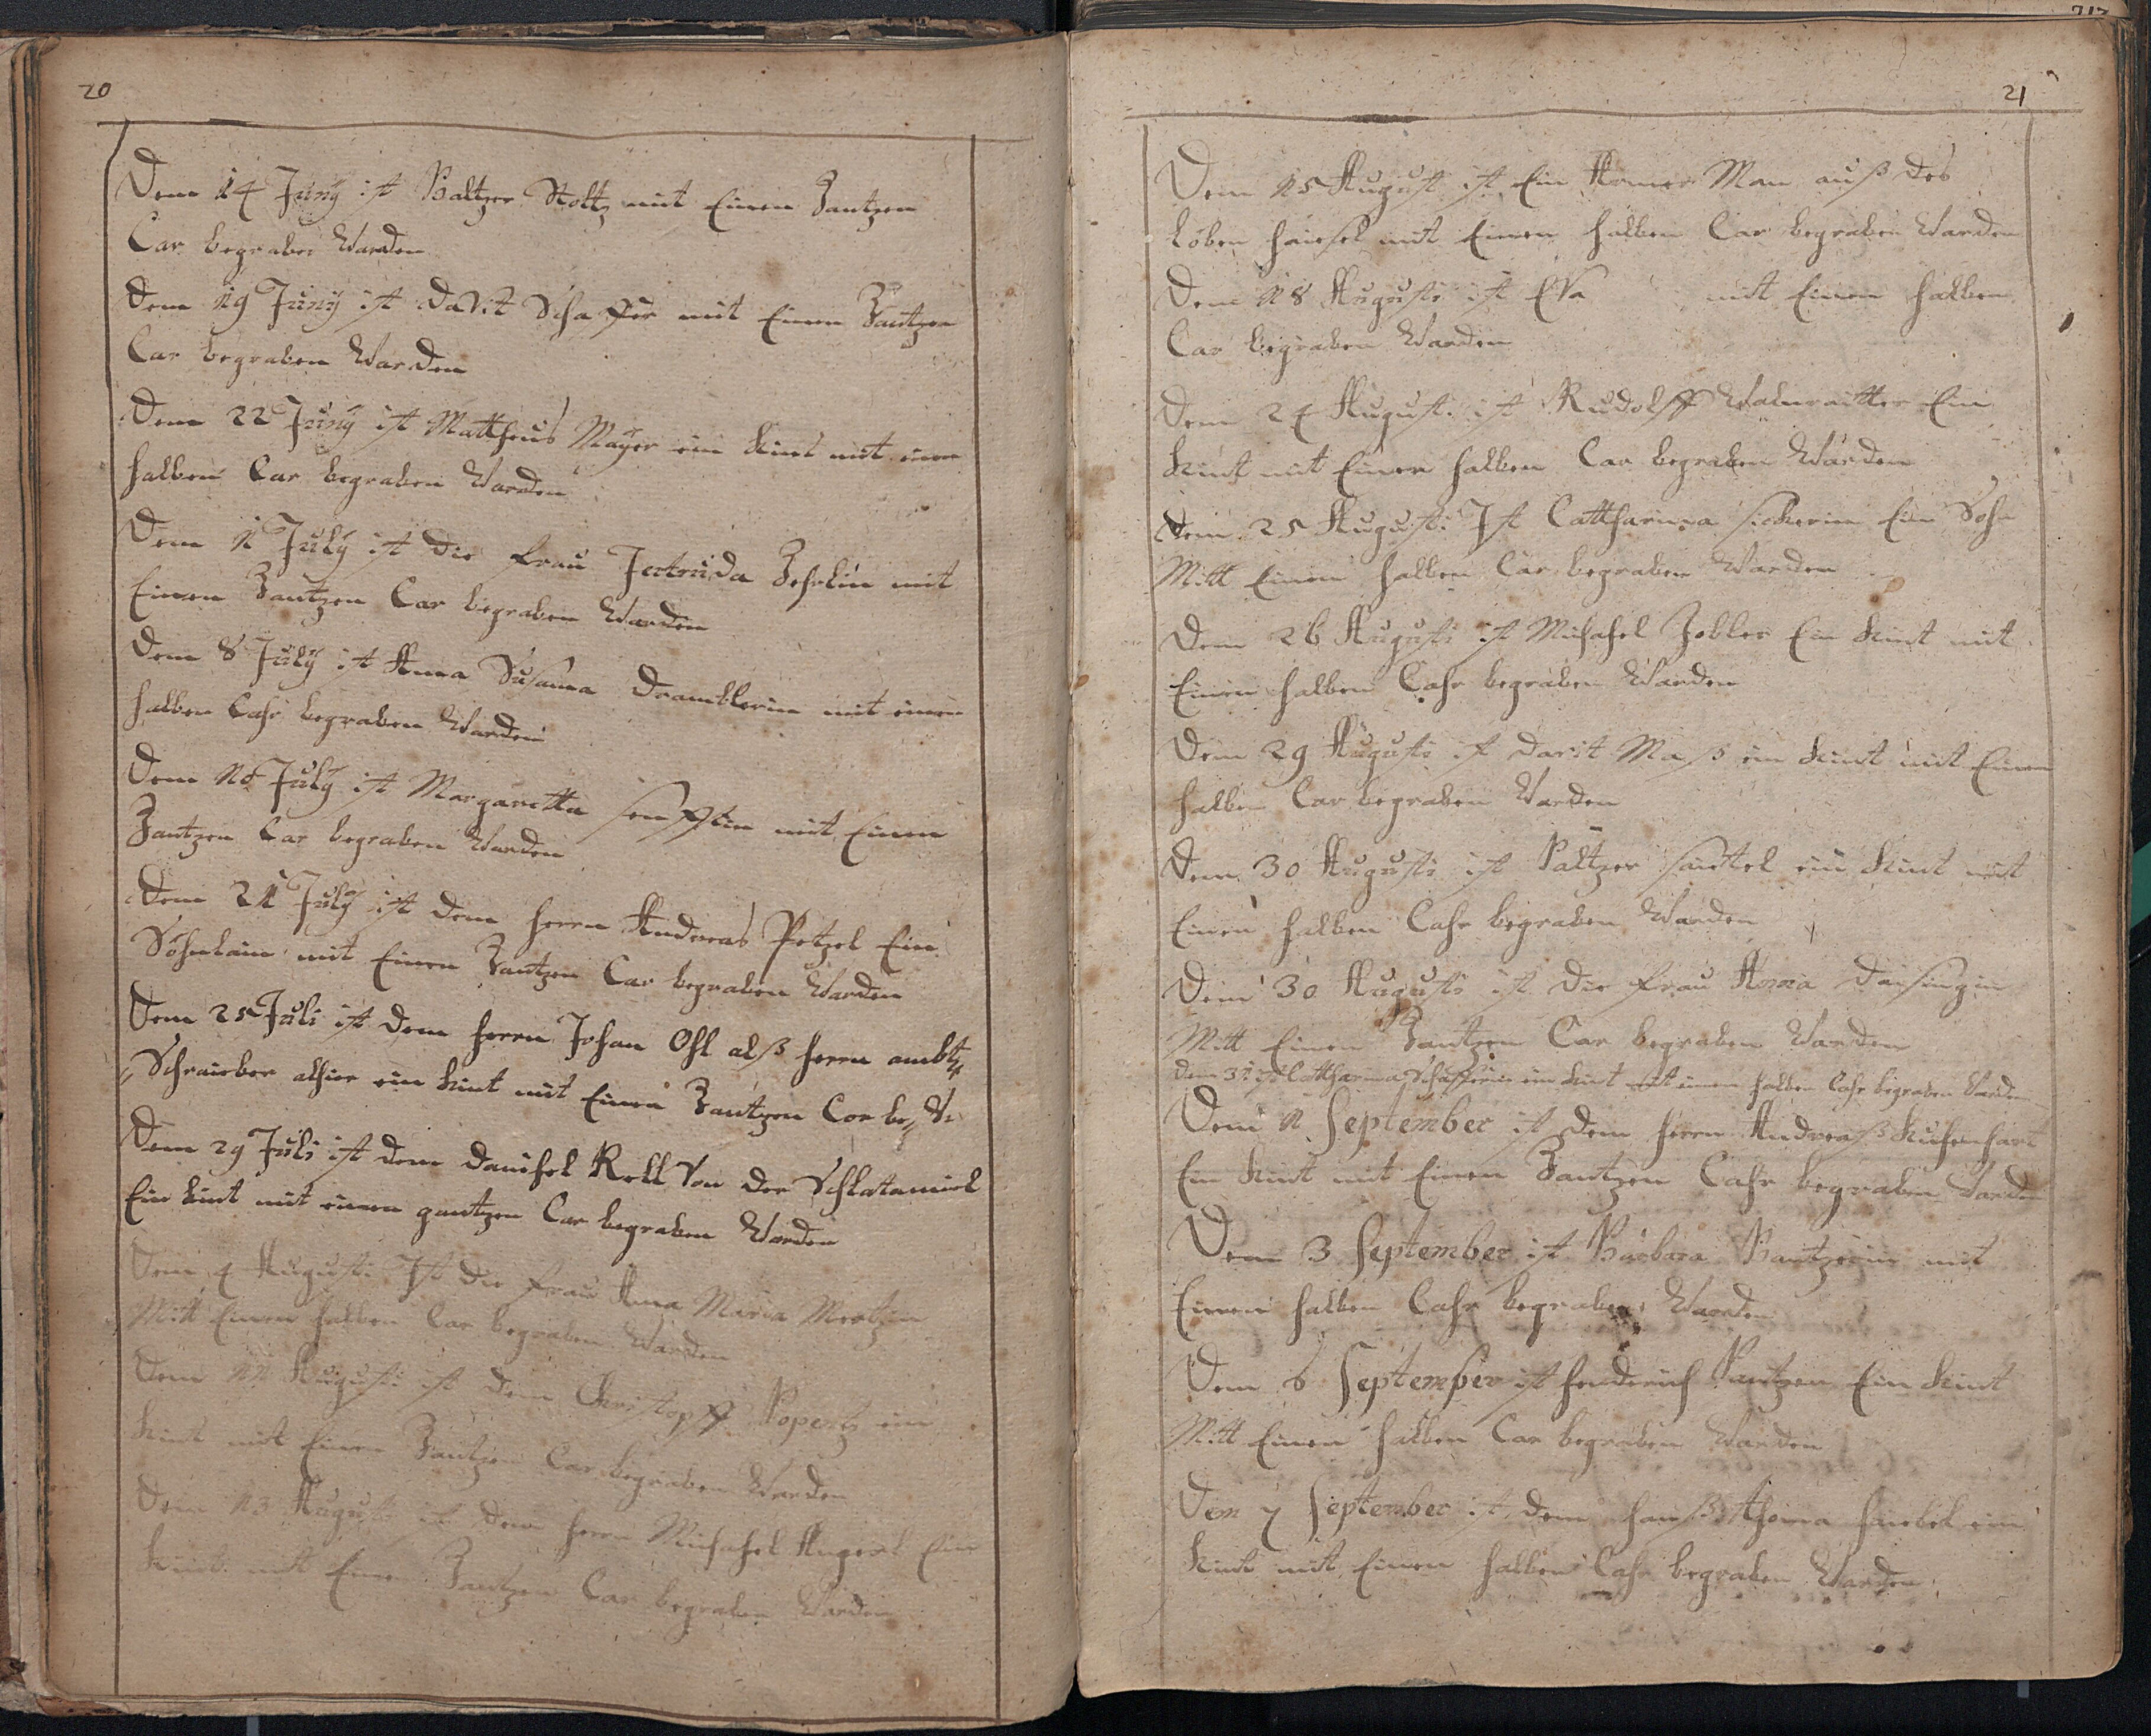 20
Dem 14 Juny ist Baltzer Stoltz mit Einen Gantzen
Car begraben Warden
Dem 19 Juny ist Davit Schaffer mit Einen Gantzen
Car begraben Warden
Dem 22 Juny ist Mattheus Mayer ein Kint mit einen
halben Car begraben Warden
Dem 1 July ist die frau Jertruda mit
Einen Gantzen Car begraben Warden
Dem 8 July ist Anna Susanna Dramblerin mit einen
halben Cahr begraben Warden
Dem July ist Margaretta mit Einen
Gantzen Car begraben Warden
Dem 21 July ist dem herrn Andreas Petzel Ein
Söhnlain mit Einen Gantzen Car begraben Warden
Dem 25 Juli ist dem herrn Johan Ohl alß herrn ambts
Schraiber alhier ein Kint mit Einen Gantzen Car be W
Dem 29 Juli ist dem Danihel Roll Von der
Ein Kint mit einen gantzen Car begraben Warden
Dem 4 Augusti Ist die frau Anna Maria Mertzin
Mitt Einen halben Car begraben Warden
Dem 11 Augusti ist dem Christopff Popertz ein
Kint mit Einen Gantzen Car begraben Warden
Dem 13 Augusti ist dem herrn Michahel Angerl Ein
Kint mit Einen Gantzen Car begraben Warden
21
Dem 15 August ist Ein Armer Man auß des
mit Einen halben Car begraben Warden
Dem 18 Augusti ist Eva mit Einen halben
Car begraben Warden
Dem 24 Augusti ist Rudolff Ein
Kint mit Einen halben Car begraben Warden
Dem 25 Augusti Ist Cattharina Ein Sohn
Mitt Einen halben Car begraben Warden
Dem 26 Augusti ist Michahel Zobler Ein Kint mit
Einen halben Cahr begraben Warden
Dem 29 Augusti ist Davit Maß ein Kint mit Einen
halben Car begraben Warden
Dem 30 Augusti ist Paltzer ein Kint mit
Einen halben Cahr begraben Warden
Dem 30 Augusti ist die frau Anna
Mitt Einen Gantzen Car begraben Warden
Dem 31 ist Cattharina Schafferin ein Kint mit einen halben Cahr begraben Warden
Dem 1 September ist dem herrn Andreaß
Ein Kint mit Einen Gantzen Cahr begraben Warden
Dem 3 September ist Barbara Bantzerin mit
Einen halben Cahr begraben Warden
Dem 6 September ist henderich Pantzer Ein Kint
Mitt Einen halben Car begraben Warden
Dem 7 September ist dem hanß Thoma ein
Kint mit Einen halben Cahr begraben Warden